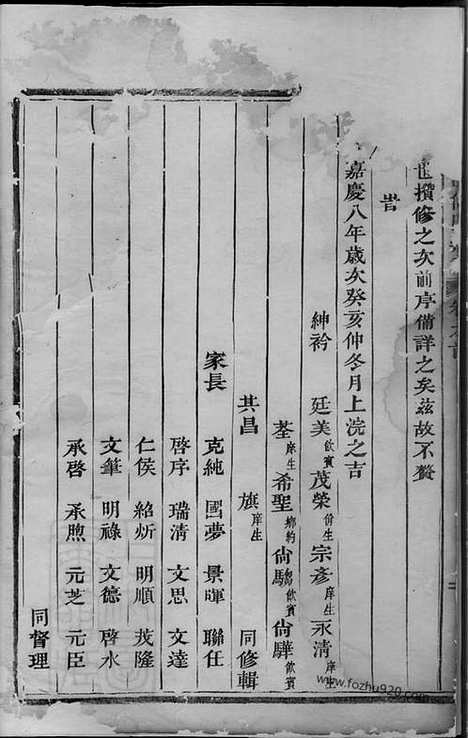 也撰修之次前序備詳之矣茲故不贅
旹
嘉慶八年歲次癸亥仲冬月上浣之吉
紳衿 廷美飲賓 茂榮佾生 宗彥庠生 永清庠生
荃庠生 希聖鄉約 尙騶飲賓 尙驊飲賓
其昌 旗庠生 同修輯
家長 克純 國夢 景暉 聯任
啓序 瑞清 文思 文達
仁侯 紹炘 明順 茂隆
文筆 明祿 文德 啓永
承啓 承煦 元芝 元臣
同督理
www.fozhu920.com